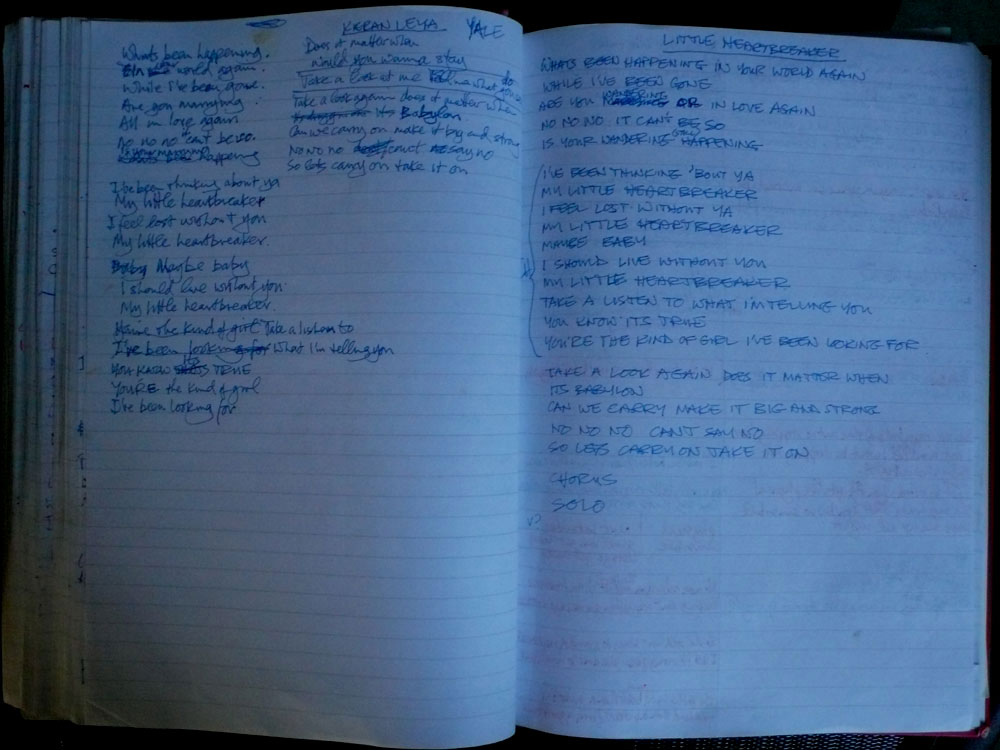 KIERAN LEYA YALE
Whats been happening.
world again.
While I've been gone.
Are you marrying
All in love again
No no no it can't be so.
happening
I've been thinking about ya
My little heartbreaker
I feel lost without you
My little heartbreaker.
Baby Maybe baby
I should live without you
My little heartbreaker.
the kind of girl Take a listen to
I've been looking for What I'm telling you
YOU KNOW ITS TRUE
YOU'RE the kind of girl
I've been looking for
Does it matter when
would you wanna stay
Take a look at me
Take a look again does it matter when
its Babylon
Can we carry on make it big and strong
No no no cannot say no
So lets carry on take it on
LITTLE HEARTBREAKER
WHATS BEEN HAPPENING IN YOUR WORLD AGAIN
WHILE I'VE BEEN GONE
ARE YOU WANDERING OR IN LOVE AGAIN
NO NO NO IT CAN'T BE SO
IS YOUR WANDERING HAPPENING
I'VE BEEN THINKING 'BOUT YA
MY LITTLE HEARTBREAKER
I FEEL LOST WITHOUT YA
MY LITTLE HEARTBREAKER
MAYBE BABY
I SHOULD LIVE WITHOUT YOU
MY LITTLE HEARTBREAKER
TAKE A LISTEN TO WHAT I'M TELLING YOU
YOU KNOW ITS TRUE
YOU'RE THE KIND OF GIRL I'VE BEEN LOOKING FOR
TAKE A LOOK AGAIN DOES IT MATTER WHEN
ITS BABYLON
CAN WE CARRY MAKE IT BIG AND STRONG
NO NO NO CANT SAY NO
SO LETS CARRY ON TAKE IT ON
CHORUS
SOLO